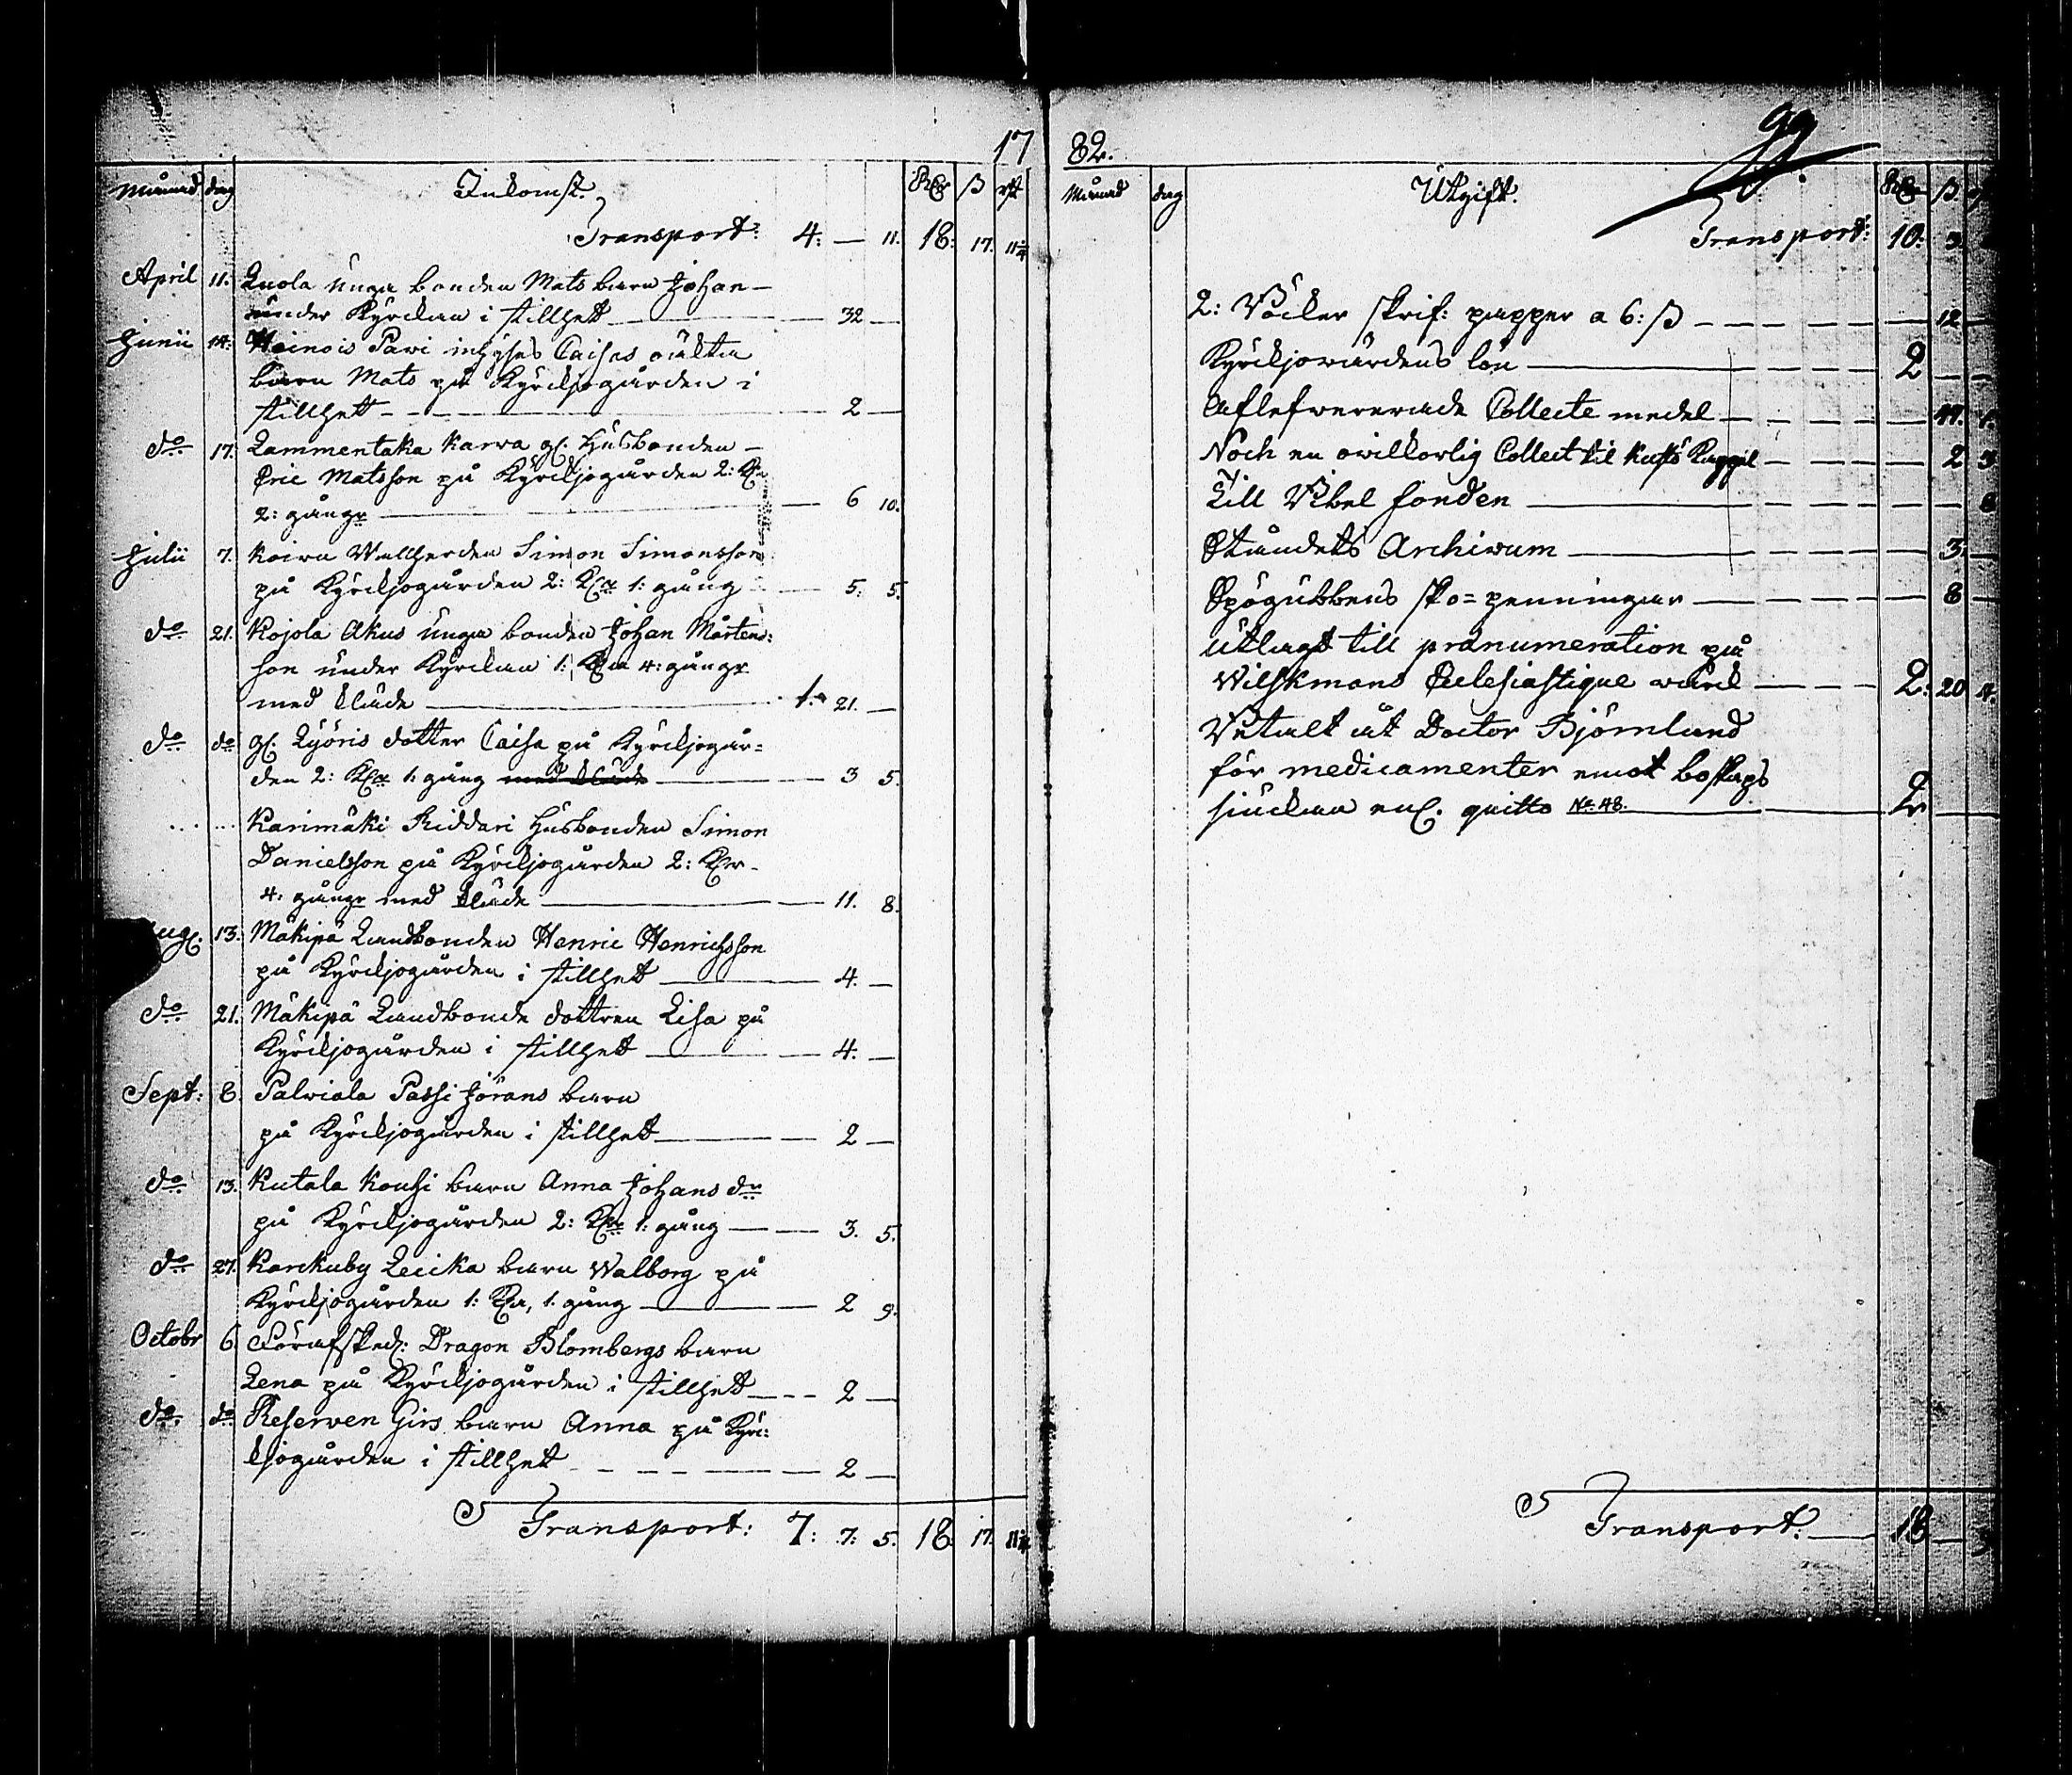 17
Månad dag Inkomst. Rd ß rst
Transport: 4: — 11. 18: 17. 11¼
April 11. Luola unga bonden Mats barn Johan —
under Kyrckan i stillhet — 32 —
Junii 14. Heinois Pavi inhyses Caisas oäkta
barn Mats på Kyrckjogården i
stillhet — 2 —
do 17. Lammentaka Karva gl. Husbonden —
Eric Matsson på Kyrckjogården 2:
2: gångr — 6 10.
Julii 7. Koiva Wallherden Simon Simonsson
på Kyrckjogården 2: 1: gång — 5: 5.
do 21. Kojola Akus unga bonden Johan Mårtens:
son under Kyrckan 1: 4: gångr
med kläde — 1. 21. —
do do gl. Lyöris dotter Caisa på Kyrckjogår=
den 2: 1: gång med kläde — 3 5.
Karimäki Riddari Husbonden Simon
Danielsson på Kyrckjogården 2:
4: gångr med kläde — 11. 8.
Aug. 13. Mäkipä Landbonden Henric Henrichsson
på Kyrckjogården i stillhet — 4. —
do 21. Mäkipä Landbonde dottren Lisa på
Kyrckjogården i stillhet — 4. —
Sept: 8. Palviala Passi Jörans barn
på Kyrckjogården i stillhet — 2 —
do 13. Kutala Kouhi barn Anna Johans dr
på Kyrckjogården 2: 1: gång — 3. 5.
do 27. Karckuby Leicka barn Walborg på
Kyrckjogården 1: 1. gång — 2 9.
Octobr 6. Förafsked: Dragon Blombergs barn
Lena på Kyrckjogården i stillhet — 2 —
do do Reserven Girs barn Anna på Kyrc:
kjogården i stillhet — 2 —
Transport: 7: 7: 5. 18. 17. 11¼
82.
Månad dag Utgift. Rd ß
Transport: 10: 3.
2: Böcker skrif: papper a 6: ß — 12 —
Kyrckjowärdens lön — 2 — —
Aflefwererade Collecte medel — 47. 1.
Noch en owilkorlig Collect til — 2 3
Till Bibel fonden — 8
Ståndets Archivum — 3. —
Spögubbens sko=penningar — 8 —
Utlagt till prænumeration på
Wilskmans Eclesiastique wärck — 2: 20 4.
Betalt åt Doctor Björnlund
för medicamenter emot boskaps
siuckan enl. quitto No. 48. — 2 —
Transport: — 18 —